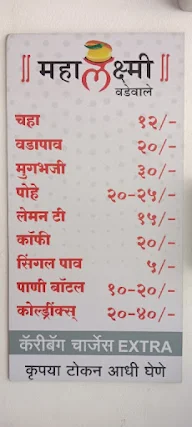 ॥ महालक्ष्मी ॥
वडेवाले
चहा १२/-
वडापाव २०/-
मुगभजी ३०/-
पोहे २०-२५/-
लेमन टी १५/-
कॉफी २०/-
सिंगल पाव ५/-
पाणी बॉटल १०-२०/-
कोल्ड्रींक्स् २०-४०/-
कॅरीबॅग चार्जेस EXTRA
कृपया टोकन आधी घेणे